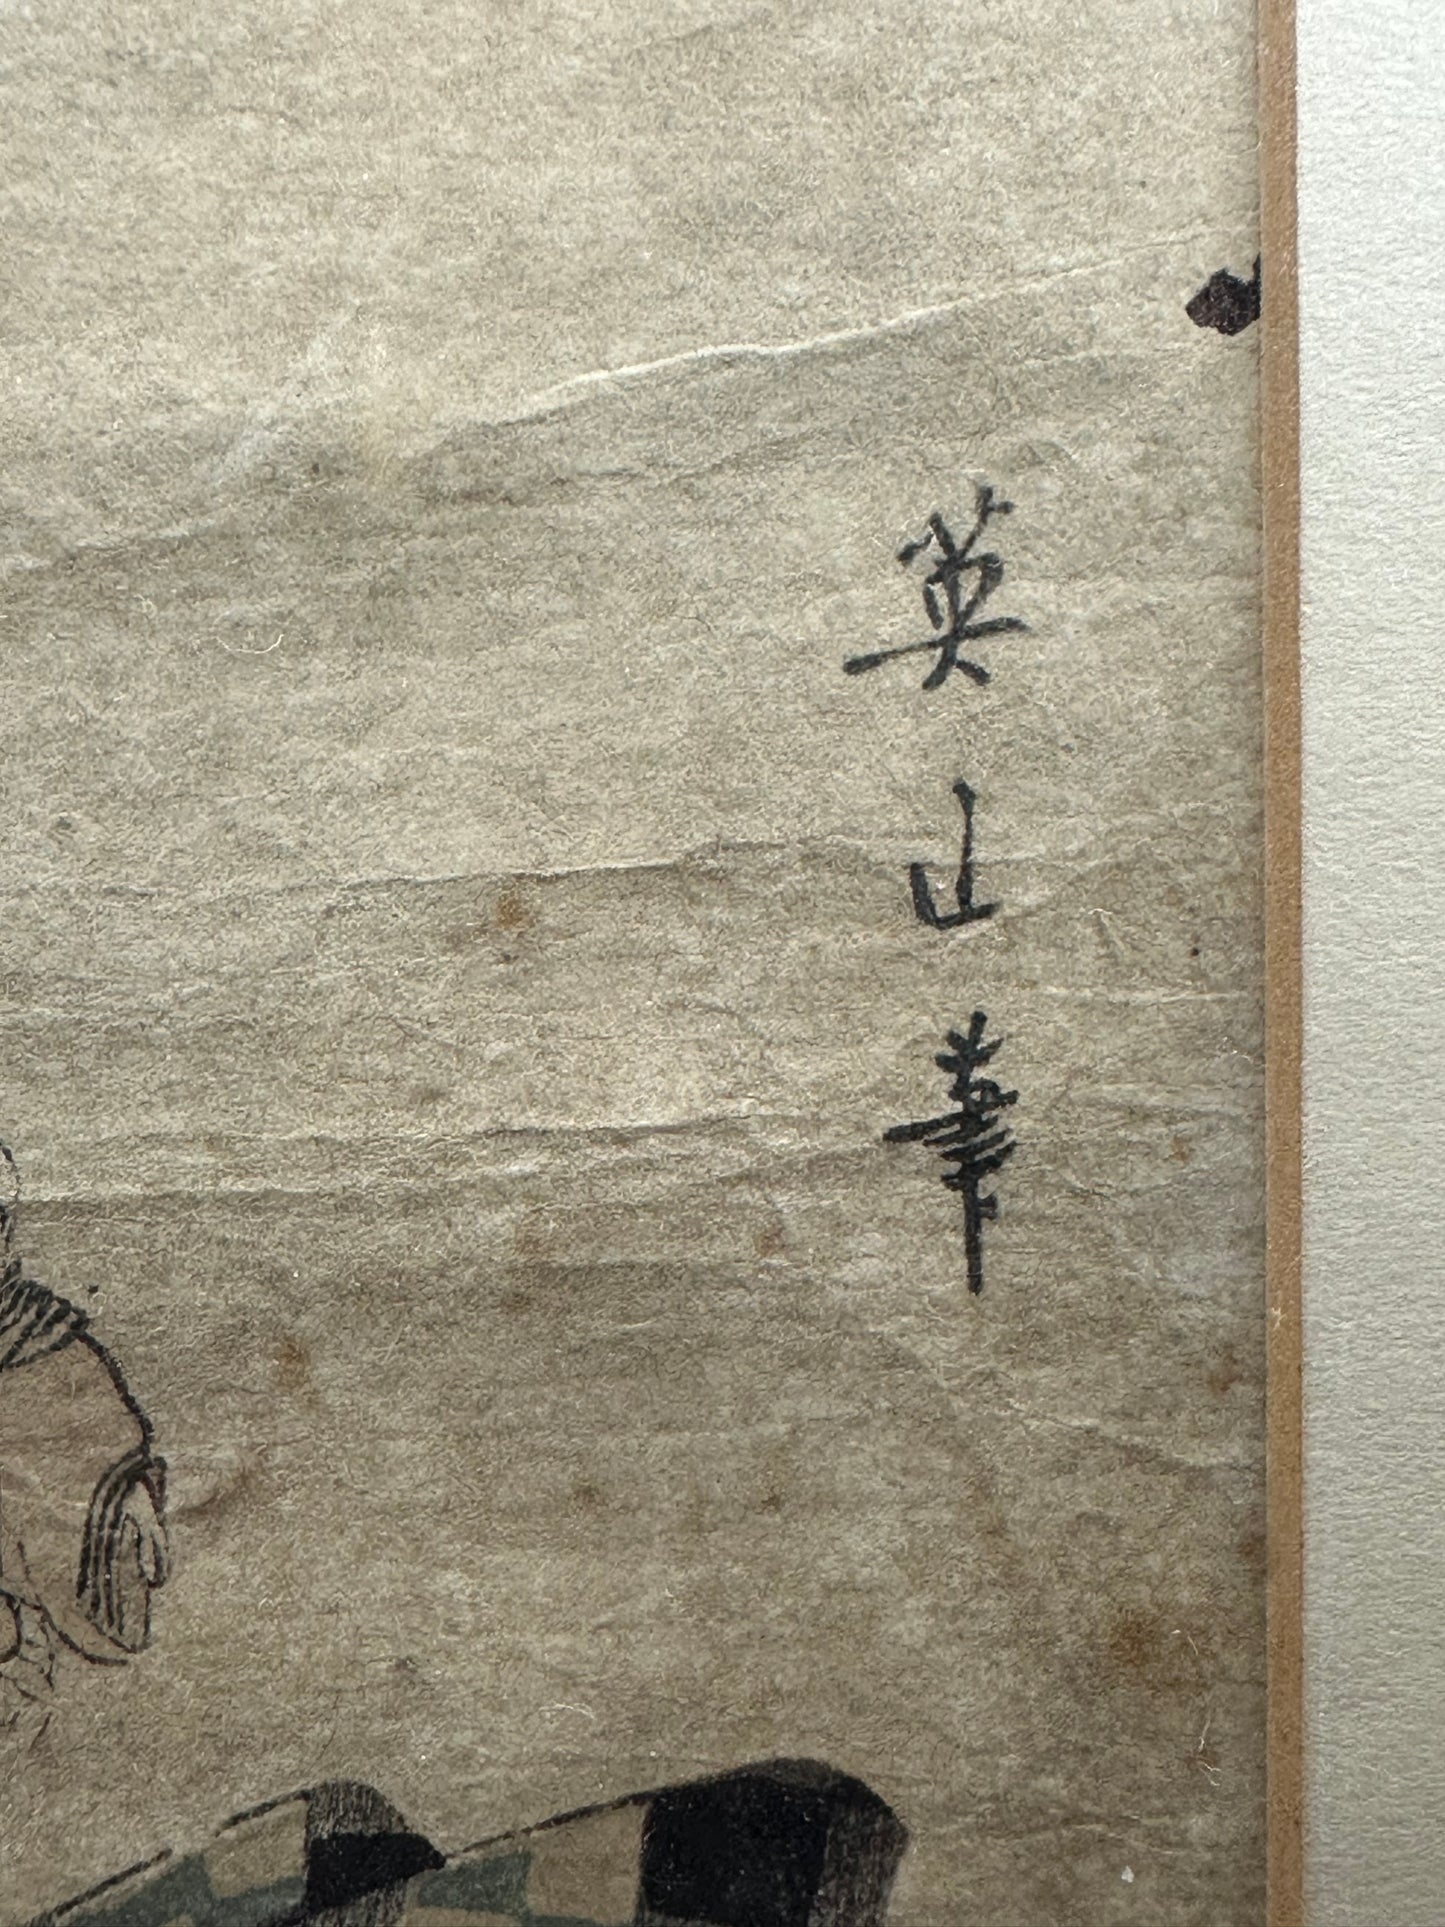 英山筆